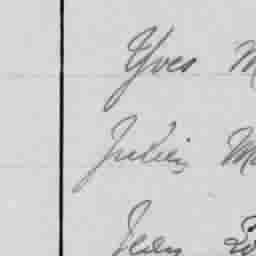 Yves M
Julien Ma
Jean